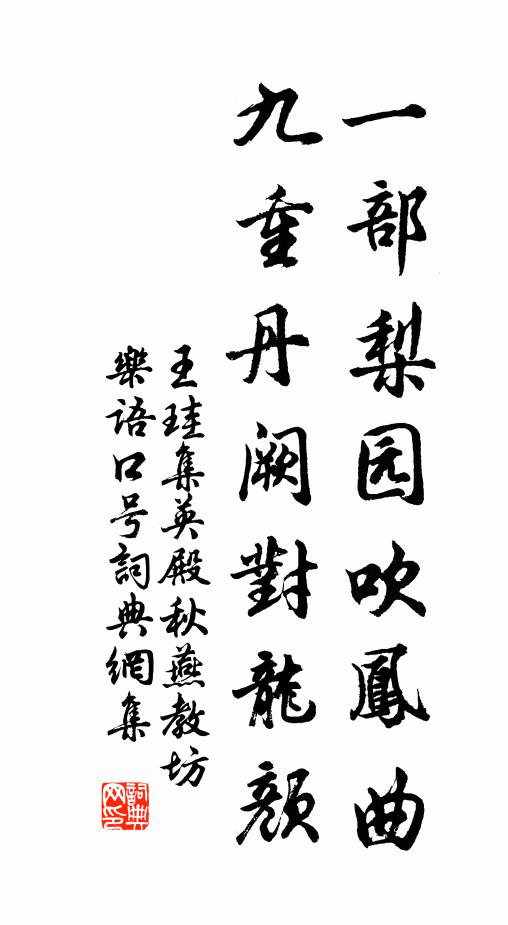 一部梨园吹鳳曲
九重丹阙對龍顔
王珪集英殿秋燕教坊
樂语口号詞典網集
詞典网印